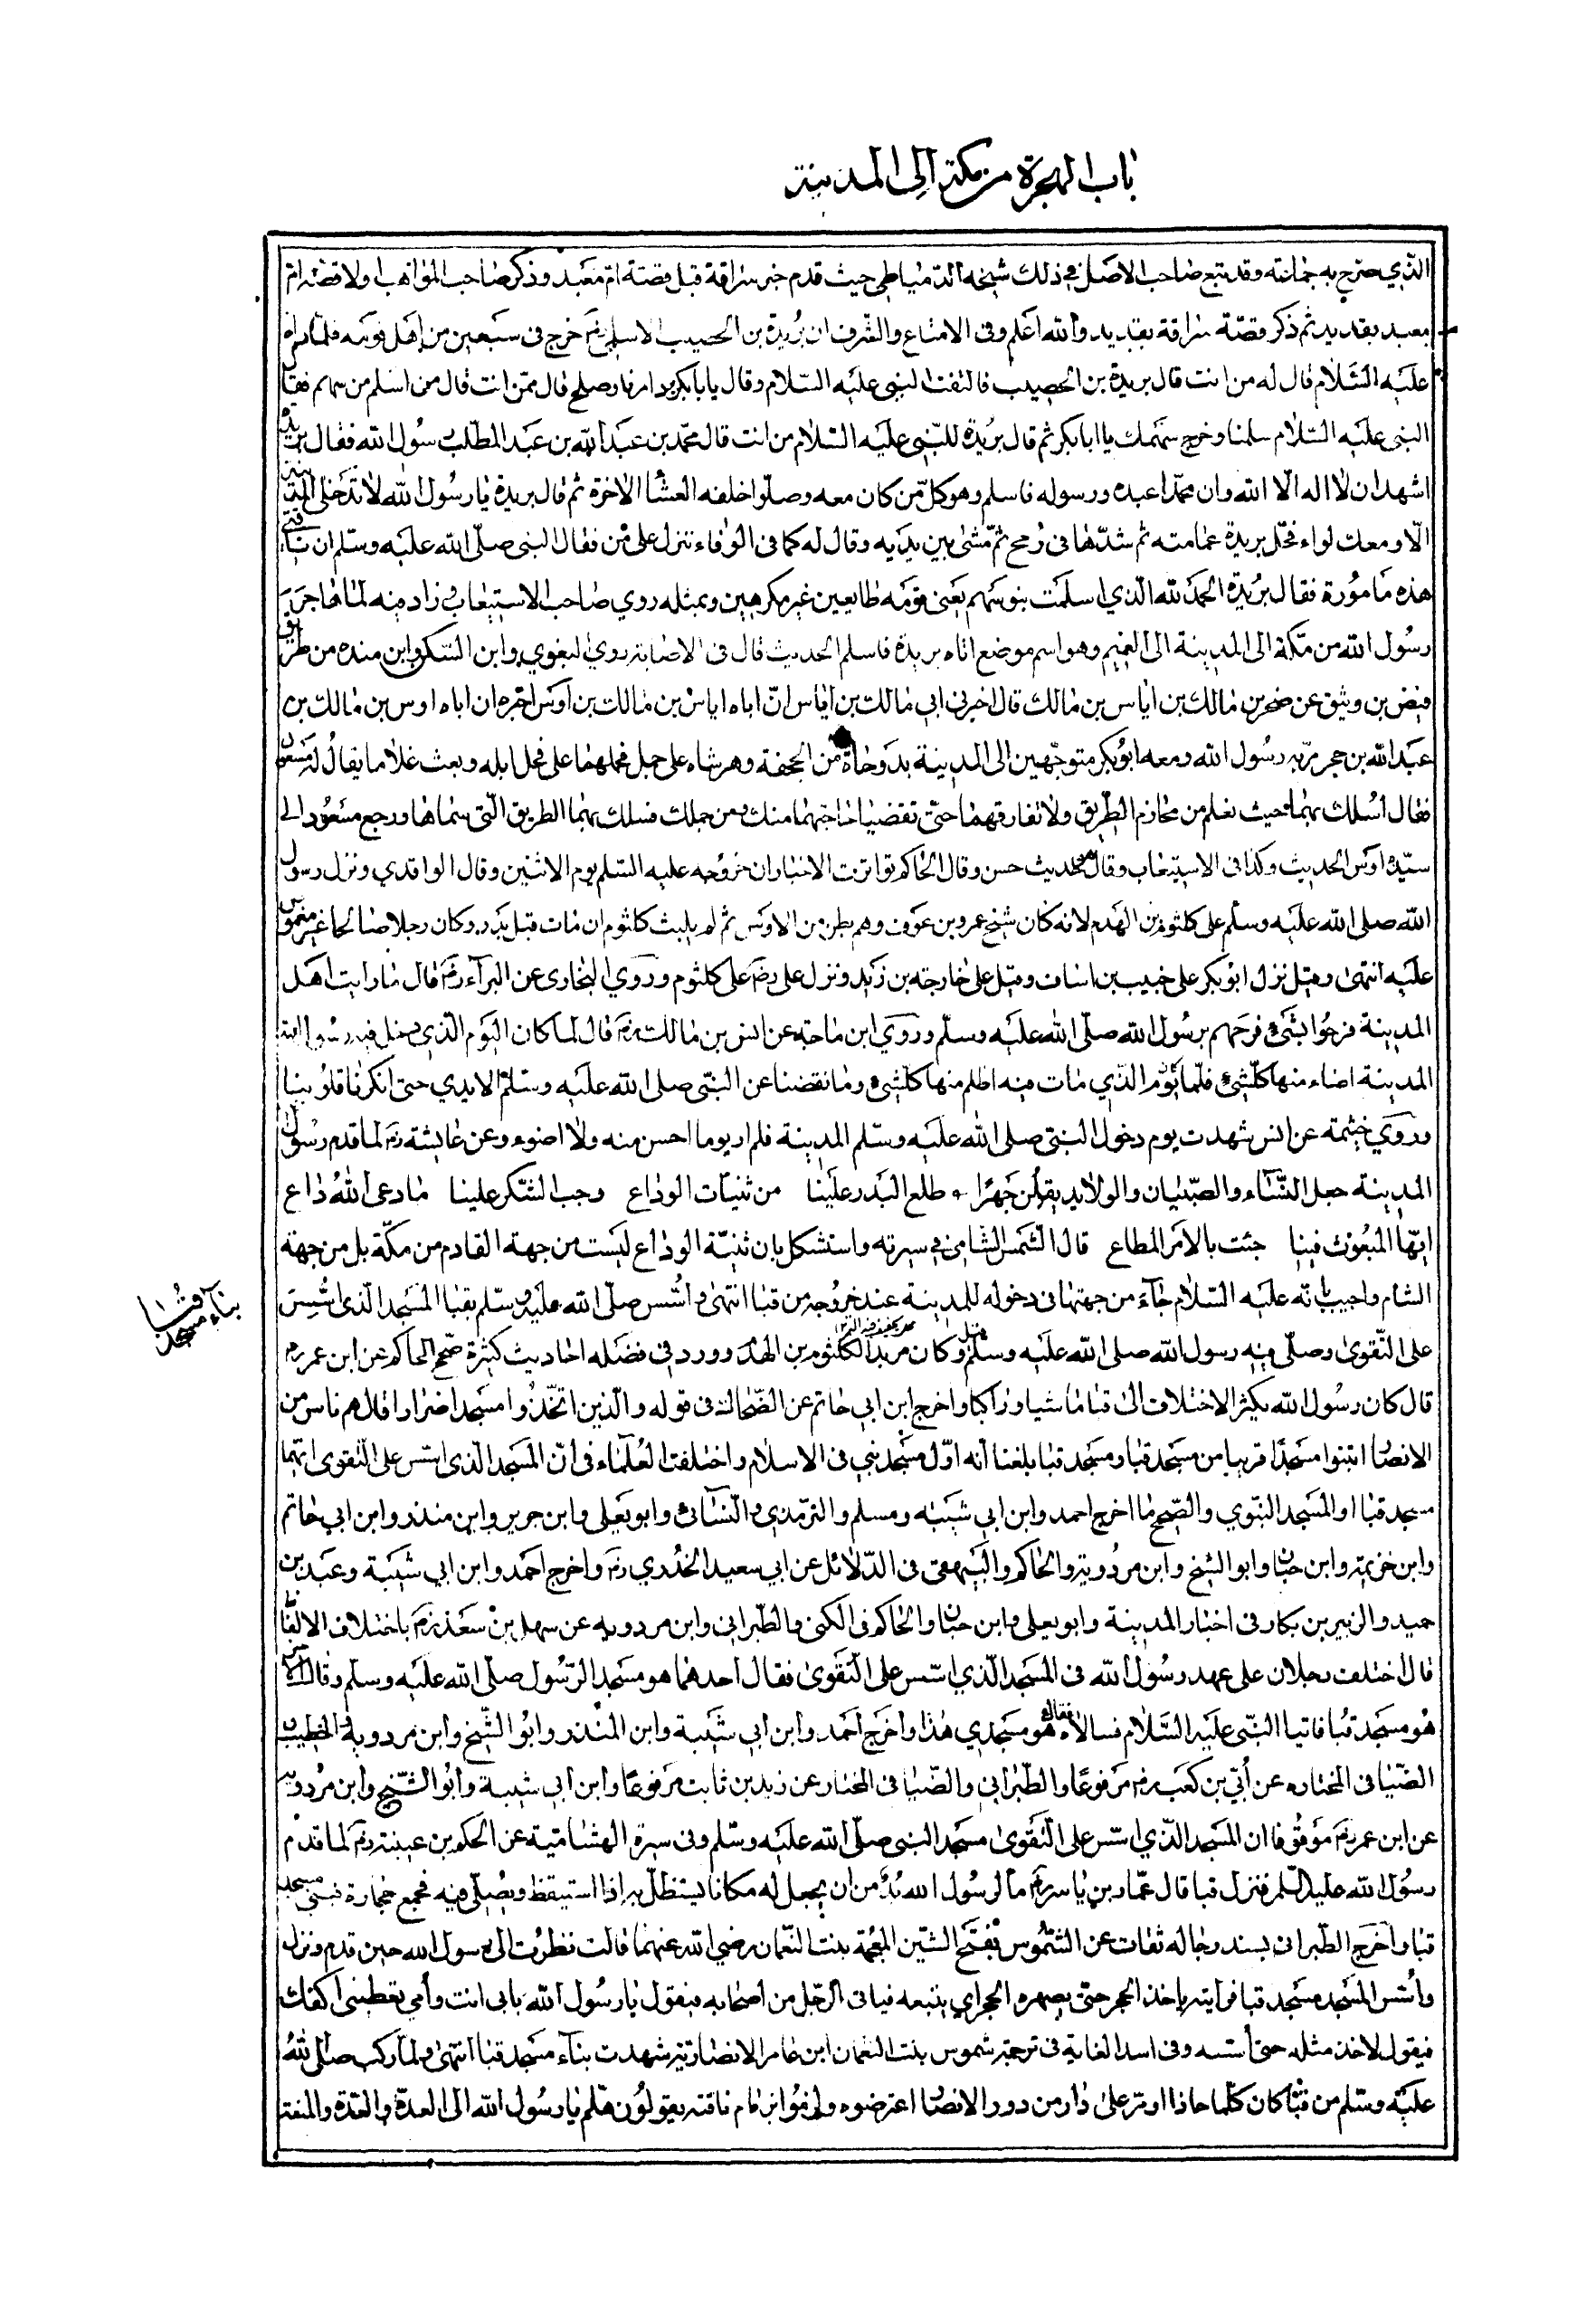 باب الهجرة من مكة الى المدينة
الذي صرح به جماعته وقد تبع صاحب الاصل في ذلك شيخه الدمياطي حيث قدم خبر سراقة قبل قصة ام معبد وذكر صاحب المواهب اولا قصة ام
معبد بقديد ثم ذكر قصة سراقة بقديد والله اعلم وفى الامتاع والشرف ان بريدة بن الحصيب الاسلمي رضه خرج فى سبعين من اهل قومه فلما راه
عليه السلام قال له من انت قال بريدة بن الحصيب فالتفت النبى عليه السلام وقال يا بابكر برد امرنا وصلح قال ممن انت قال من اسلم من سهم فقال
النبى عليه السلام سلمنا وخرج سهمك يا ابابكر ثم قال بريدة للنبى عليه السلام من انت قال محمد بن عبد الله بن عبد المطلب رسول الله فقال بريدة
اشهد ان لا اله الا الله وان محمدا عبده ورسوله فاسلم وهو كل من كان معه وصلوا خلفه العشأ الاخرة ثم قال بريدة يا رسول الله لا تدخل المدينة
الا ومعك لواء فحل بريدة عمامته ثم شدها فى رمح ثم مشى بين يديه وقال له كما فى الوفاء تنزل على من فقال النبى صلى الله عليه وسلم ان ناقتى
هذه مأمورة فقال بريدة الحمد لله الذي اسلمت بنو سهم يعنى قومه طايعين غير مكرهين وبمثله روي صاحب الاستيعاب وزاد منه لما هاجر
رسول الله من مكة الى المدينة الى الغميم وهو اسم موضع اتاه بريدة فاسلم الحديث قال فى الاصابة روى البغوي وابن السكن وابن منده من طريق
فيض بن وثيق عن صخر بن مالك بن اياس بن مالك قال اخبرنى ابي مالك بن اياس ان اباه اياس بن مالك بن اوس اخبره ان اباه اوس بن مالك بن
عبد الله بن حجر مر به رسول الله ومعه ابو بكر متوجهين الى المدينة بدوحاة من الجحفة وهرشاه على جمل فحملهما على فحل ابله وبعث غلاما يقال له مسعود
فقال اسلك بهما حيث تعلم من مخارم الطريق ولا تفارقهما حتى تقضيا حاجتهما منك ومن جملك فسلك بهما الطريق التى سماها ورجع مسعود الى
سيده اوس الحديث وكذا فى الاستيعاب وقال حديث حسن وقال الحاكم تواترت الاخبار ان خروجه عليه السلم يوم الاثنين وقال الواقدي ونزل رسول
الله صلى الله عليه وسلم على كلثوم بن الهدم لانه كان شيخ عمرو بن عوف وهم بطن من الاوس ثم لم يلبث كلثوم ان مات قبل بدر وكان رجلا صالحا غير مغموص
عليه انتهى وقيل نزل ابو بكر على خبيب بن اساف وقيل على خارجة بن زيد ونزل على رضه على كلثوم وروي البخارى عن البراء رضه قال ما رايت اهل
المدينة فرحوا بشئ فرحهم برسول الله صلى الله عليه وسلم وروي ابن ماجة عن انس بن مالك رضه قال لما كان اليوم الذي دخل فيه رسول الله
المدينة اضاء منها كل شئ فلما يوم الذي مات فيه اظلم منها كل شئ وما نفضنا عن النبى صلى الله عليه وسلم الايدي حتى انكرنا قلوبنا
وروي خيثمة عن انس شهدت يوم دخول النبى صلى الله عليه وسلم المدينة فلم ار يوما احسن منه ولا اضوء وعن عايشة رضه لما قدم رسول الله
المدينة جعل النساء والصبيان والولايد يقولن جهرا طلع البدر علينا من ثنيات الوداع وجب الشكر علينا ما دعى الله داع
ايها المبعوث فينا جئت بالامر المطاع قال الشمس الشامى في سيرته واستشكل بان ثنية الوداع ليست من جهة القادم من مكة بل من جهة
الشام واجيب بانه عليه السلام جاء من جهتها فى دخوله للمدينة عند خروجه من قبا انتهى واسس صلى الله عليه وسلم بقبا المسجد الذى اسس
على التقوى وصلى فيه رسول الله صلى الله عليه وسلم وكان مربدا لكلثوم بن الهدم وورد فى فضله احاديث كثيرة صحح الحاكم عن ابن عمر رضه
قال كان رسول الله يكثر الاختلاف الى قبا ماشيا وراكبا واخرج ابن ابي حاتم عن الضحاك فى قوله والذين اتخذوا مسجدا ضرارا قال هم ناس من
الانصار ابتنوا مسجدا قريبا من مسجد قبا ومسجد قبا بلغنا انه اول مسجد بنى فى الاسلام واختلفت العلماء فى ان المسجد الذى اسس على التقوى ايهما
مسجد قبا او المسجد النبوي والصحيح ما اخرج احمد وابن ابي شيبه ومسلم والترمذي والنسائ وابو يعلى وابن جرير وابن منذر وابن ابي حاتم
وابن خزيمة وابن حبان وابو الشيخ وابن مردوية والحاكم والبيهقى فى الدلائل عن ابي سعيد الخدري رضه واخرج احمد وابن ابي شيبة وعبد بن
حميد والزبير بن بكار فى اخبار المدينة وابو يعلى وابن حبان والحاكم فى الكنى والطبرانى وابن مردويه عن سهل بن سعد رضه باختلاف الالفاظ
قال اختلف رجلان على عهد رسول الله فى المسجد الذي اسس على التقوى فقال احدهما هو مسجد الرسول صلى الله عليه وسلم وقال الاخر
هو مسجد قبا فاتيا النبى عليه السلام فسالاه فقال هو مسجدي هذا واخرج احمد وابن ابي شيبة وابن المنذر وابو الشيخ وابن مردويه والخطيب
الضيا فى المختاره عن أبي بن كعب رضه مرفوعا والطبرانى والضيا فى المختار عن زيد بن ثابت مرفوعا وابن ابي شيبة وابو الشيخ وابن مردويه
عن ابن عمر رضه موقوفا ان المسجد الذي اسس على التقوى مسجد النبى صلى الله عليه وسلم وفى سيرة الهشامية عن الحكم بن عيينة رضه لما قدم
رسول الله عليه السلم فنزل قبا قال عمار بن ياسر رضه ما لرسول الله بد من ان يجعل له مكانا يستظل به اذا استيقظ ويصلى فيه فجمع حجارة فبنى مسجد
قبا واخرج الطبرانى بسند رجاله ثقات عن الشموس بفتح الشين المعجمة بنت النعمان رضى الله عنهما قالت نظرت الى رسول الله حين قدم ونزل
وأسس المسجد مسجد قبا فرايته يأخذ الحجر حتى يصهره الحجر اي يتبعه فيأتى الرجل من اصحابه فيقول يا رسول الله بابى انت وأمي تعطينى اكفك
فيقول لا خذ مثله حتى أسسه وفى اسد الغاية فى ترجمة شموس بنت النعمان ابن عامر الانصارية شهدت بناء مسجد قبا انتهى ولما ركب صلى الله
عليه وسلم من قبا كان كلما حاذا او مر على دار من دور الانصار اعترضوه ولزموا زمام ناقته يقولون هلم يا رسول الله الى العدة والعدة والمنعة
بناء مسجد قبا